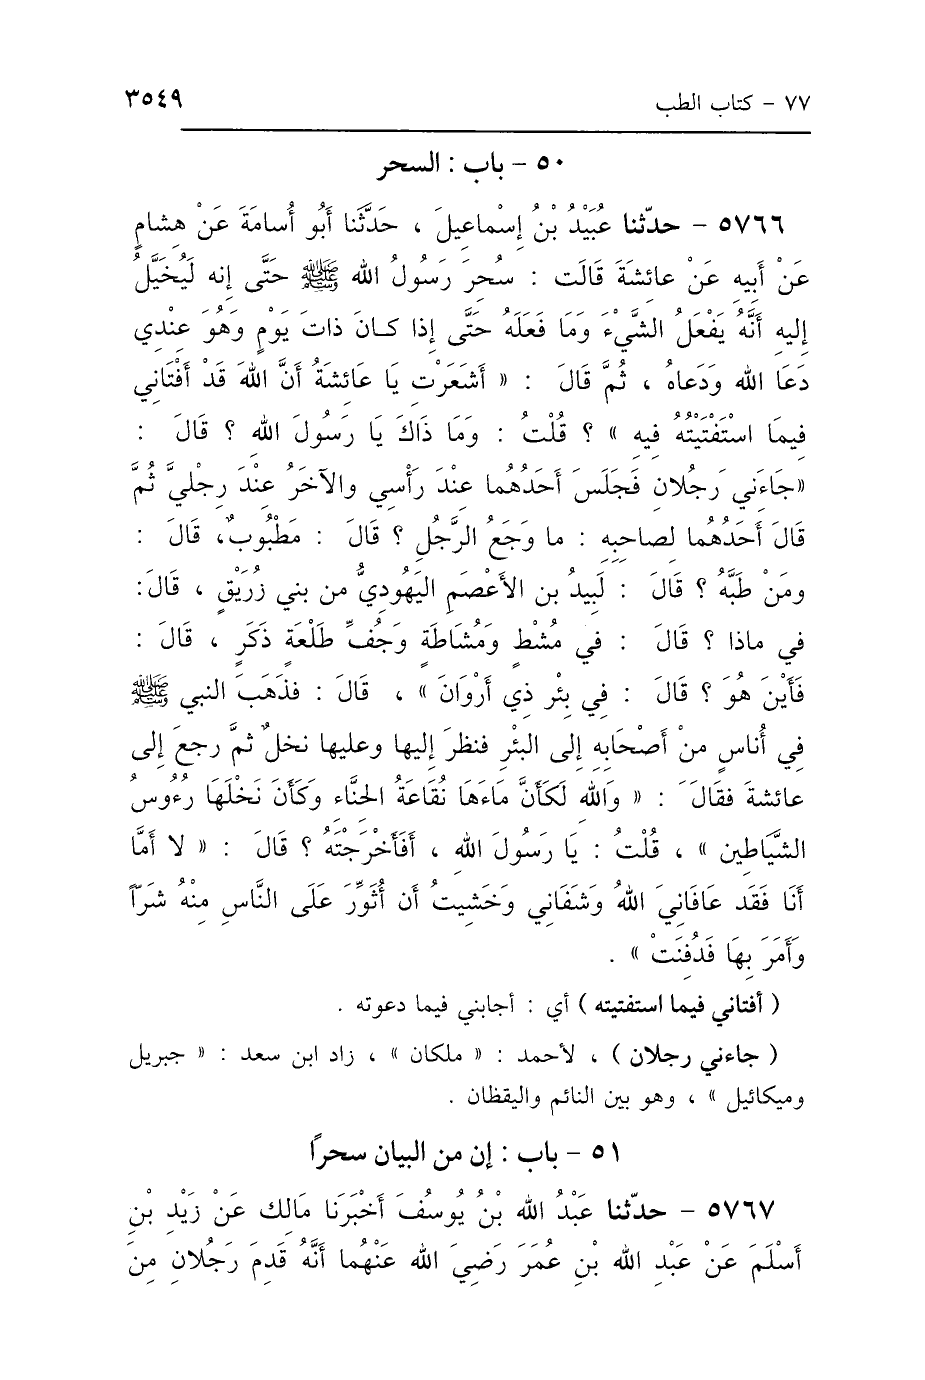 ٧٧ – كتاب الطب ٣٥٤٩
٥٠ – باب : السحر
٥٧٦٦ – حدّثنا عُبَيْدُ بْنُ إِسْماعِيلَ ، حَدَّثَنا أَبُو أُسامَةَ عَنْ هِشامٍ
عَنْ أَبيه عَنْ عائشَةَ قَالَت : سُحِرَ رَسُولُ الله ﷺ حَتَّى إنه لَيُخَيَّلُ
إليه أَنَّهُ يَفْعَلُ الشَّيْءَ وَمَا فَعَلَهُ حَتَّى إذا كانَ ذاتَ يَوْمٍ وَهُوَ عِنْدِي
دَعَا الله وَدَعاهُ ، ثُمَّ قَالَ : « أَشَعَرْتِ يَا عَائِشَةُ أَنَّ اللهَ قَدْ أَفْتَانِي
فِيمَا اسْتَفْتَيْتُهُ فِيهِ » ؟ قُلْتُ : وَمَا ذَاكَ يَا رَسُولَ الله ؟ قالَ :
«جَاءَنِي رَجُلانِ فَجَلَسَ أَحَدُهُما عِنْدَ رَأْسِي والآخَرُ عِنْدَ رِجْليَّ ثُمَّ
قالَ أَحَدُهُما لِصاحِبِهِ : ما وَجَعُ الرَّجُلِ ؟ قَالَ : مَطْبُوبٌ، قَالَ :
ومَنْ طَبَّهُ ؟ قَالَ : لَبِيدُ بن الأَعْصَمِ اليَهُودِيُّ من بني زُرَيْقٍ ، قَالَ:
في ماذا ؟ قَالَ : في مُشْطٍ وَمُشَاطَةٍ وَجُفِّ طَلْعَةٍ ذَكَرٍ ، قَالَ :
فَأَيْنَ هُوَ ؟ قَالَ : فِي بِئْرِ ذي أَرْوَانَ » ، قَالَ : فذَهَبَ النبي ﷺ
فِي أُناسٍ مِنْ أَصْحَابِهِ إلى البئْرِ فنظرَ إليها وعليها نخلٌ ثمَّ رجعَ إلى
عائشةَ فقَالَ : « وَاللهِ لَكَأَنَّ مَاءَهَا نُقَاعَةُ الحِنَّاءِ وَكَأَنَ نَخْلَهَا رُءُوسُ
الشَّيَاطِينِ » ، قُلْتُ : يَا رَسُولَ الله ، أَفَأَخْرَجْتَهُ ؟ قَالَ : « لا أَمَّا
أَنَا فَقَد عَافَانِيَ اللهُ وَشَفَانِي وَخَشِيتُ أن أُثَوِّرَ عَلَى النَّاسِ مِنْهُ شَرّاً
وَأَمَرَ بِهَا فَدُفِنَتْ » .
( أفتاني فيما استفتيته ) أي : أجابني فيما دعوته .
( جاءني رجلان ) ، لأحمد : « ملكان » ، زاد ابن سعد : « جبريل
وميكائيل » ، وهو بين النائم واليقظان .
٥١ – باب : إن من البيان سحرًا
٥٧٦٧ – حدّثنا عَبْدُ الله بْنُ يُوسُفَ أَخْبَرَنَا مَالِك عَنْ زَيْدِ بْنِ
أَسْلَمَ عَنْ عَبْدِ الله بْنِ عُمَرَ رَضِيَ الله عَنْهُما أَنَّهُ قَدِمَ رَجُلانِ مِنَ